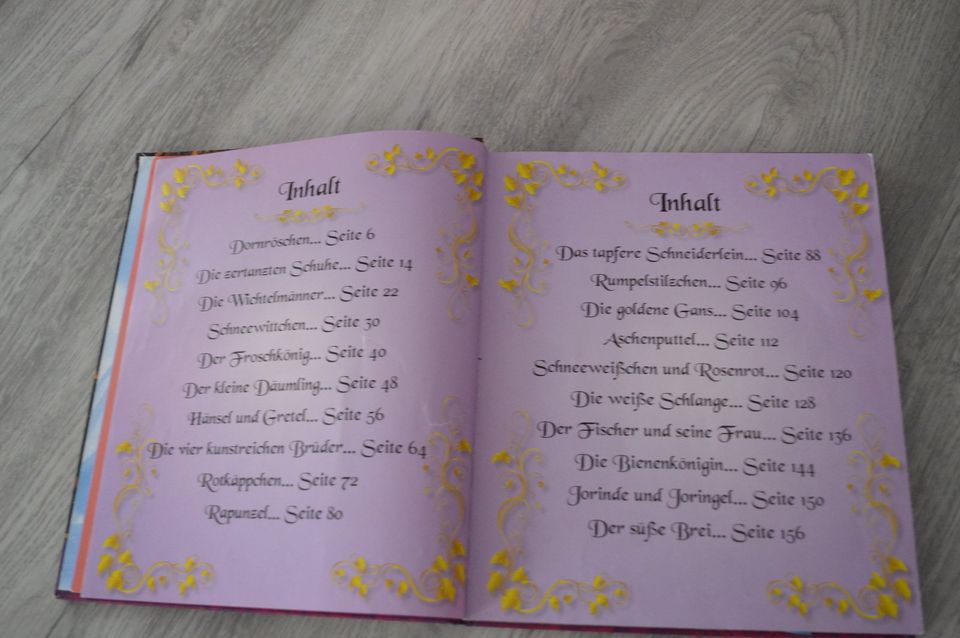 Inhalt
Dornröschen... Seite 6
Die zertanzten Schuhe... Seite 14
Die Wichtelmänner... Seite 22
Schneewittchen... Seite 30
Der Froschkönig... Seite 40
Der kleine Däumling... Seite 48
Hänsel und Gretel... Seite 56
Die vier kunstreichen Brüder... Seite 64
Rotkäppchen... Seite 72
Rapunzel... Seite 80
Inhalt
Das tapfere Schneiderlein... Seite 88
Rumpelstilzchen... Seite 96
Die goldene Gans... Seite 104
Aschenputtel... Seite 112
Schneeweißchen und Rosenrot... Seite 120
Die weiße Schlange... Seite 128
Der Fischer und seine Frau... Seite 136
Die Bienenkönigin... Seite 144
Jorinde und Joringel... Seite 150
Der süße Brei... Seite 156